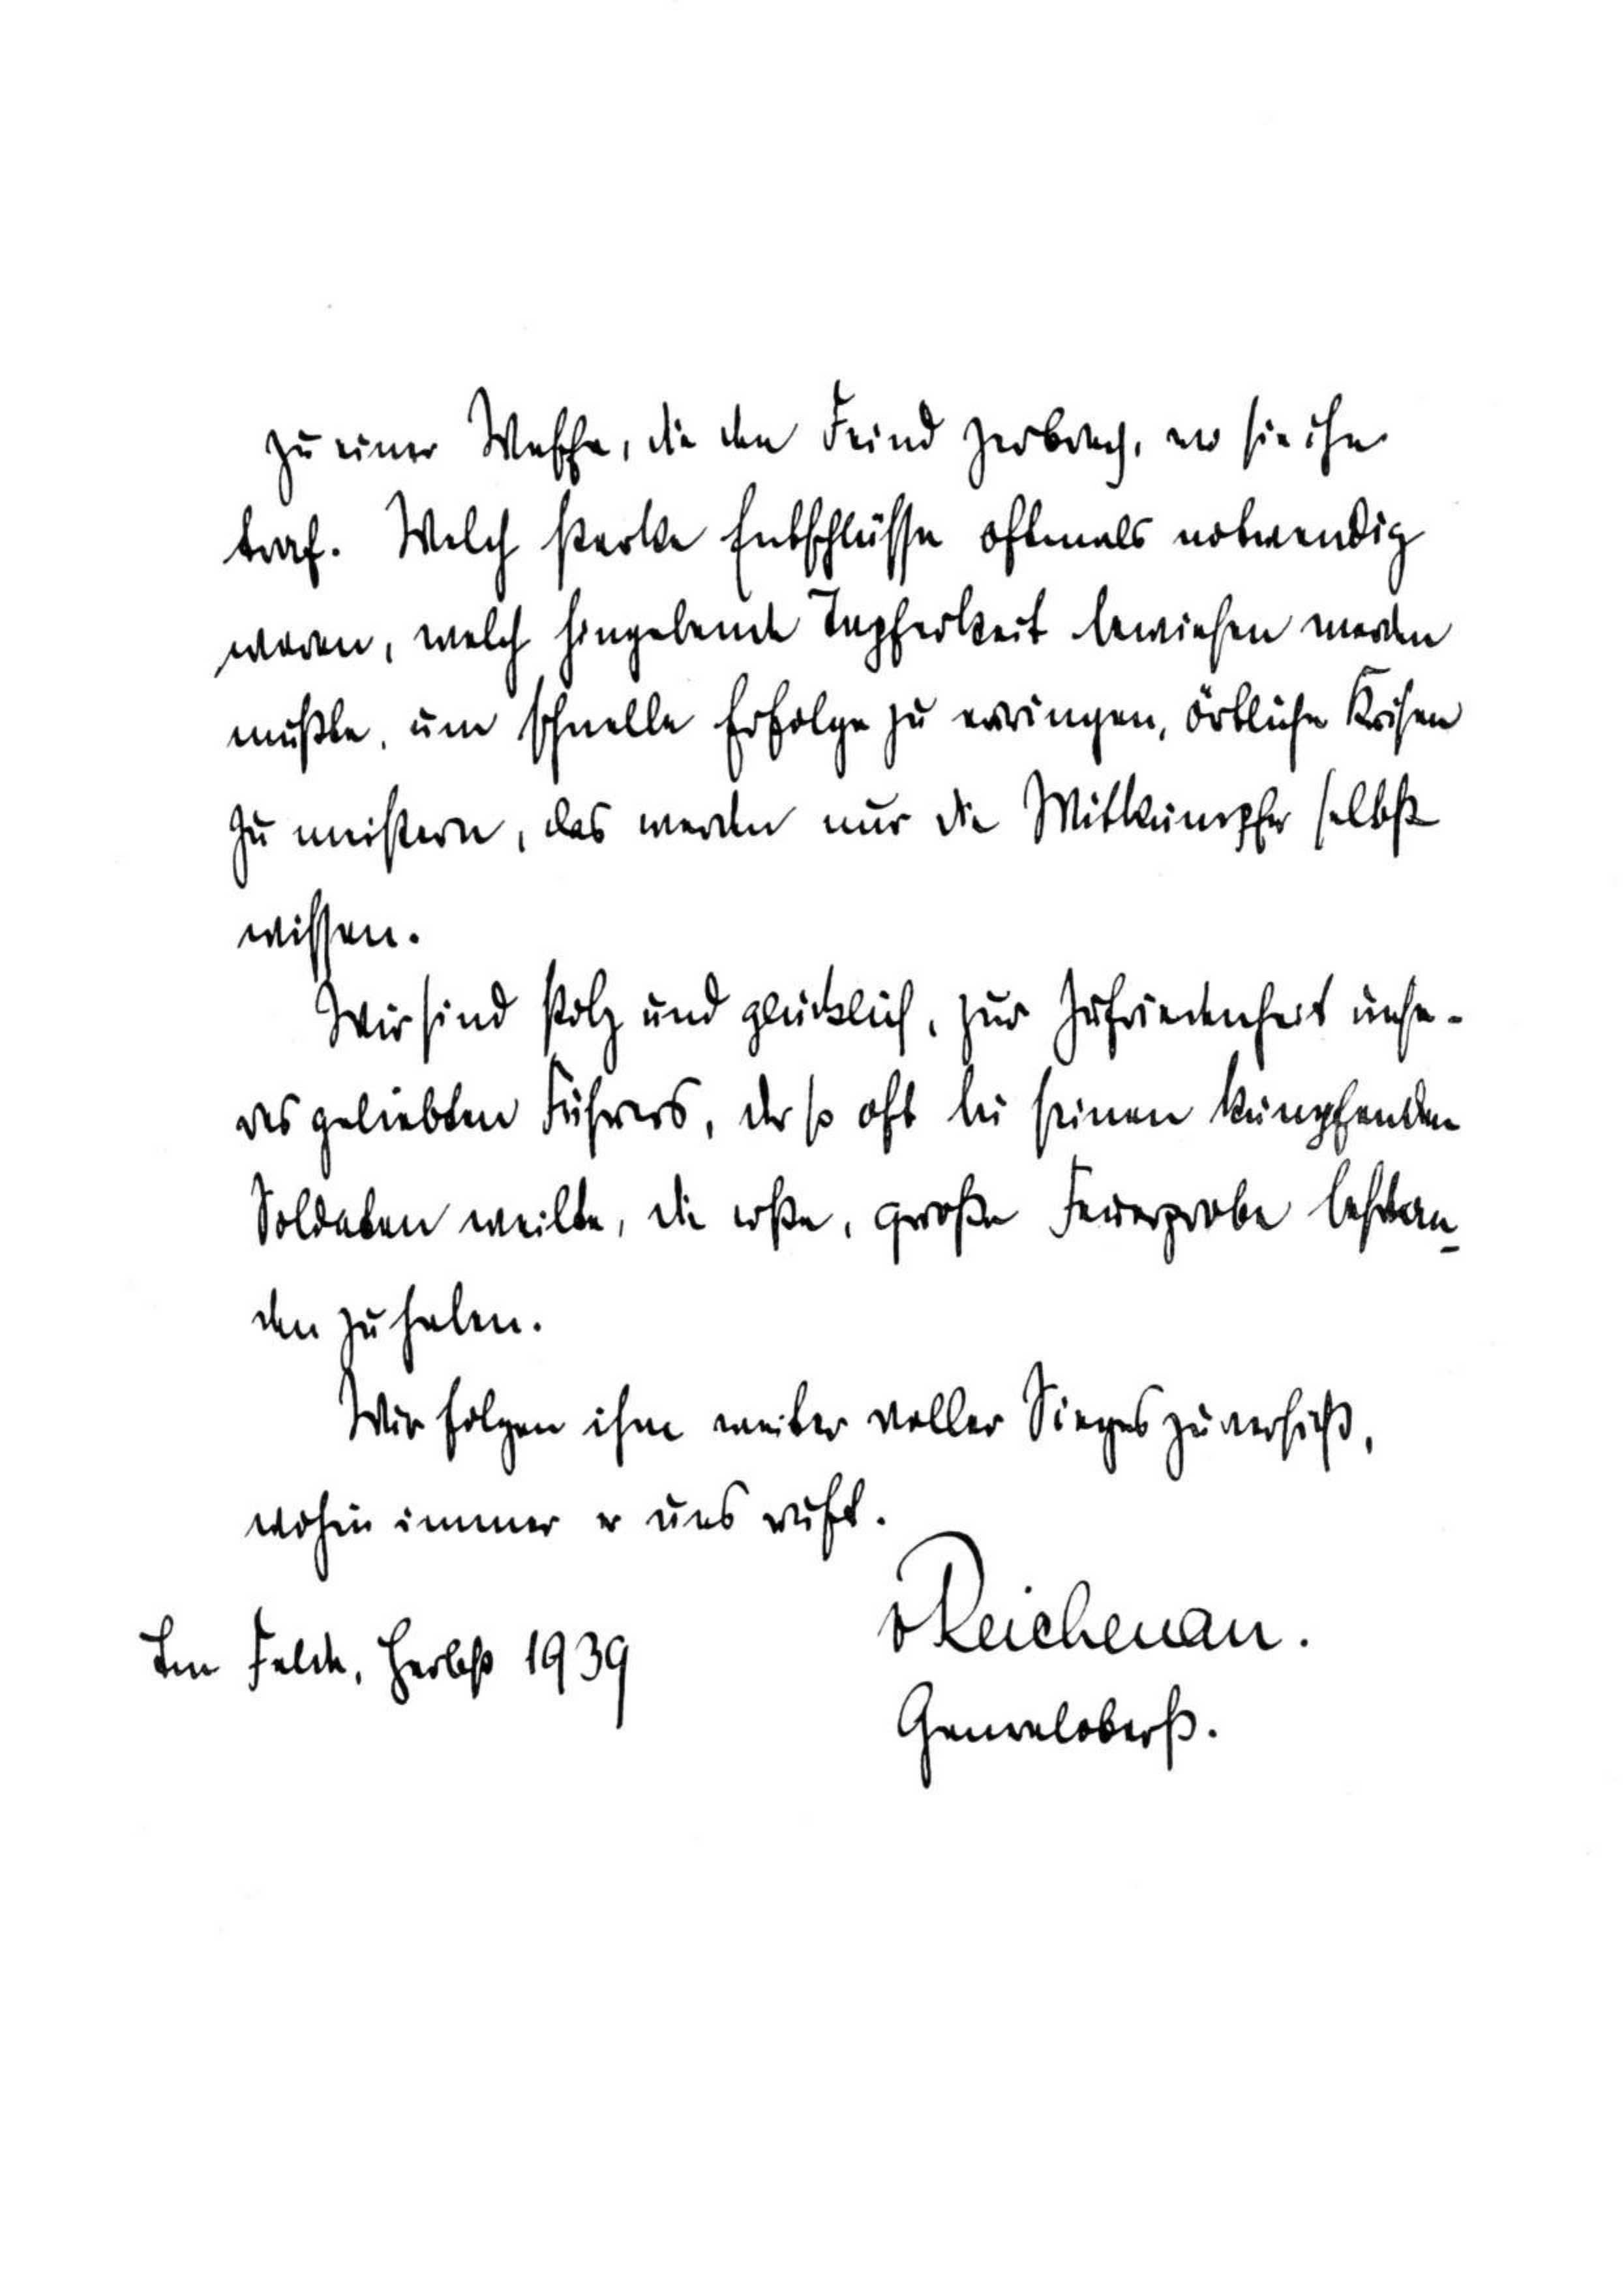 zu einer Waffe, die den Feind zerbrach, wo sie ihn
traf. Welch starke Entschlüsse oftmals notwendig
waren, welch hingebende Tapferkeit bewiesen werden
mußte, um schnelle Erfolge zu erringen, örtliche Krisen
zu meistern, das werden nur die Mitkämpfer selbst
wissen.
Wir sind stolz und glücklich, zur Zufriedenheit unse-
res geliebten Führers, der so oft bei seinen kämpfenden
Soldaten weilte, die erste, große Feuerprobe bestan-
den zu haben.
Wir folgen ihm weiter voller Siegeszuversicht,
wohin immer er uns ruft.
vReichenau.
Im Felde, Herbst 1939
Generaloberst.